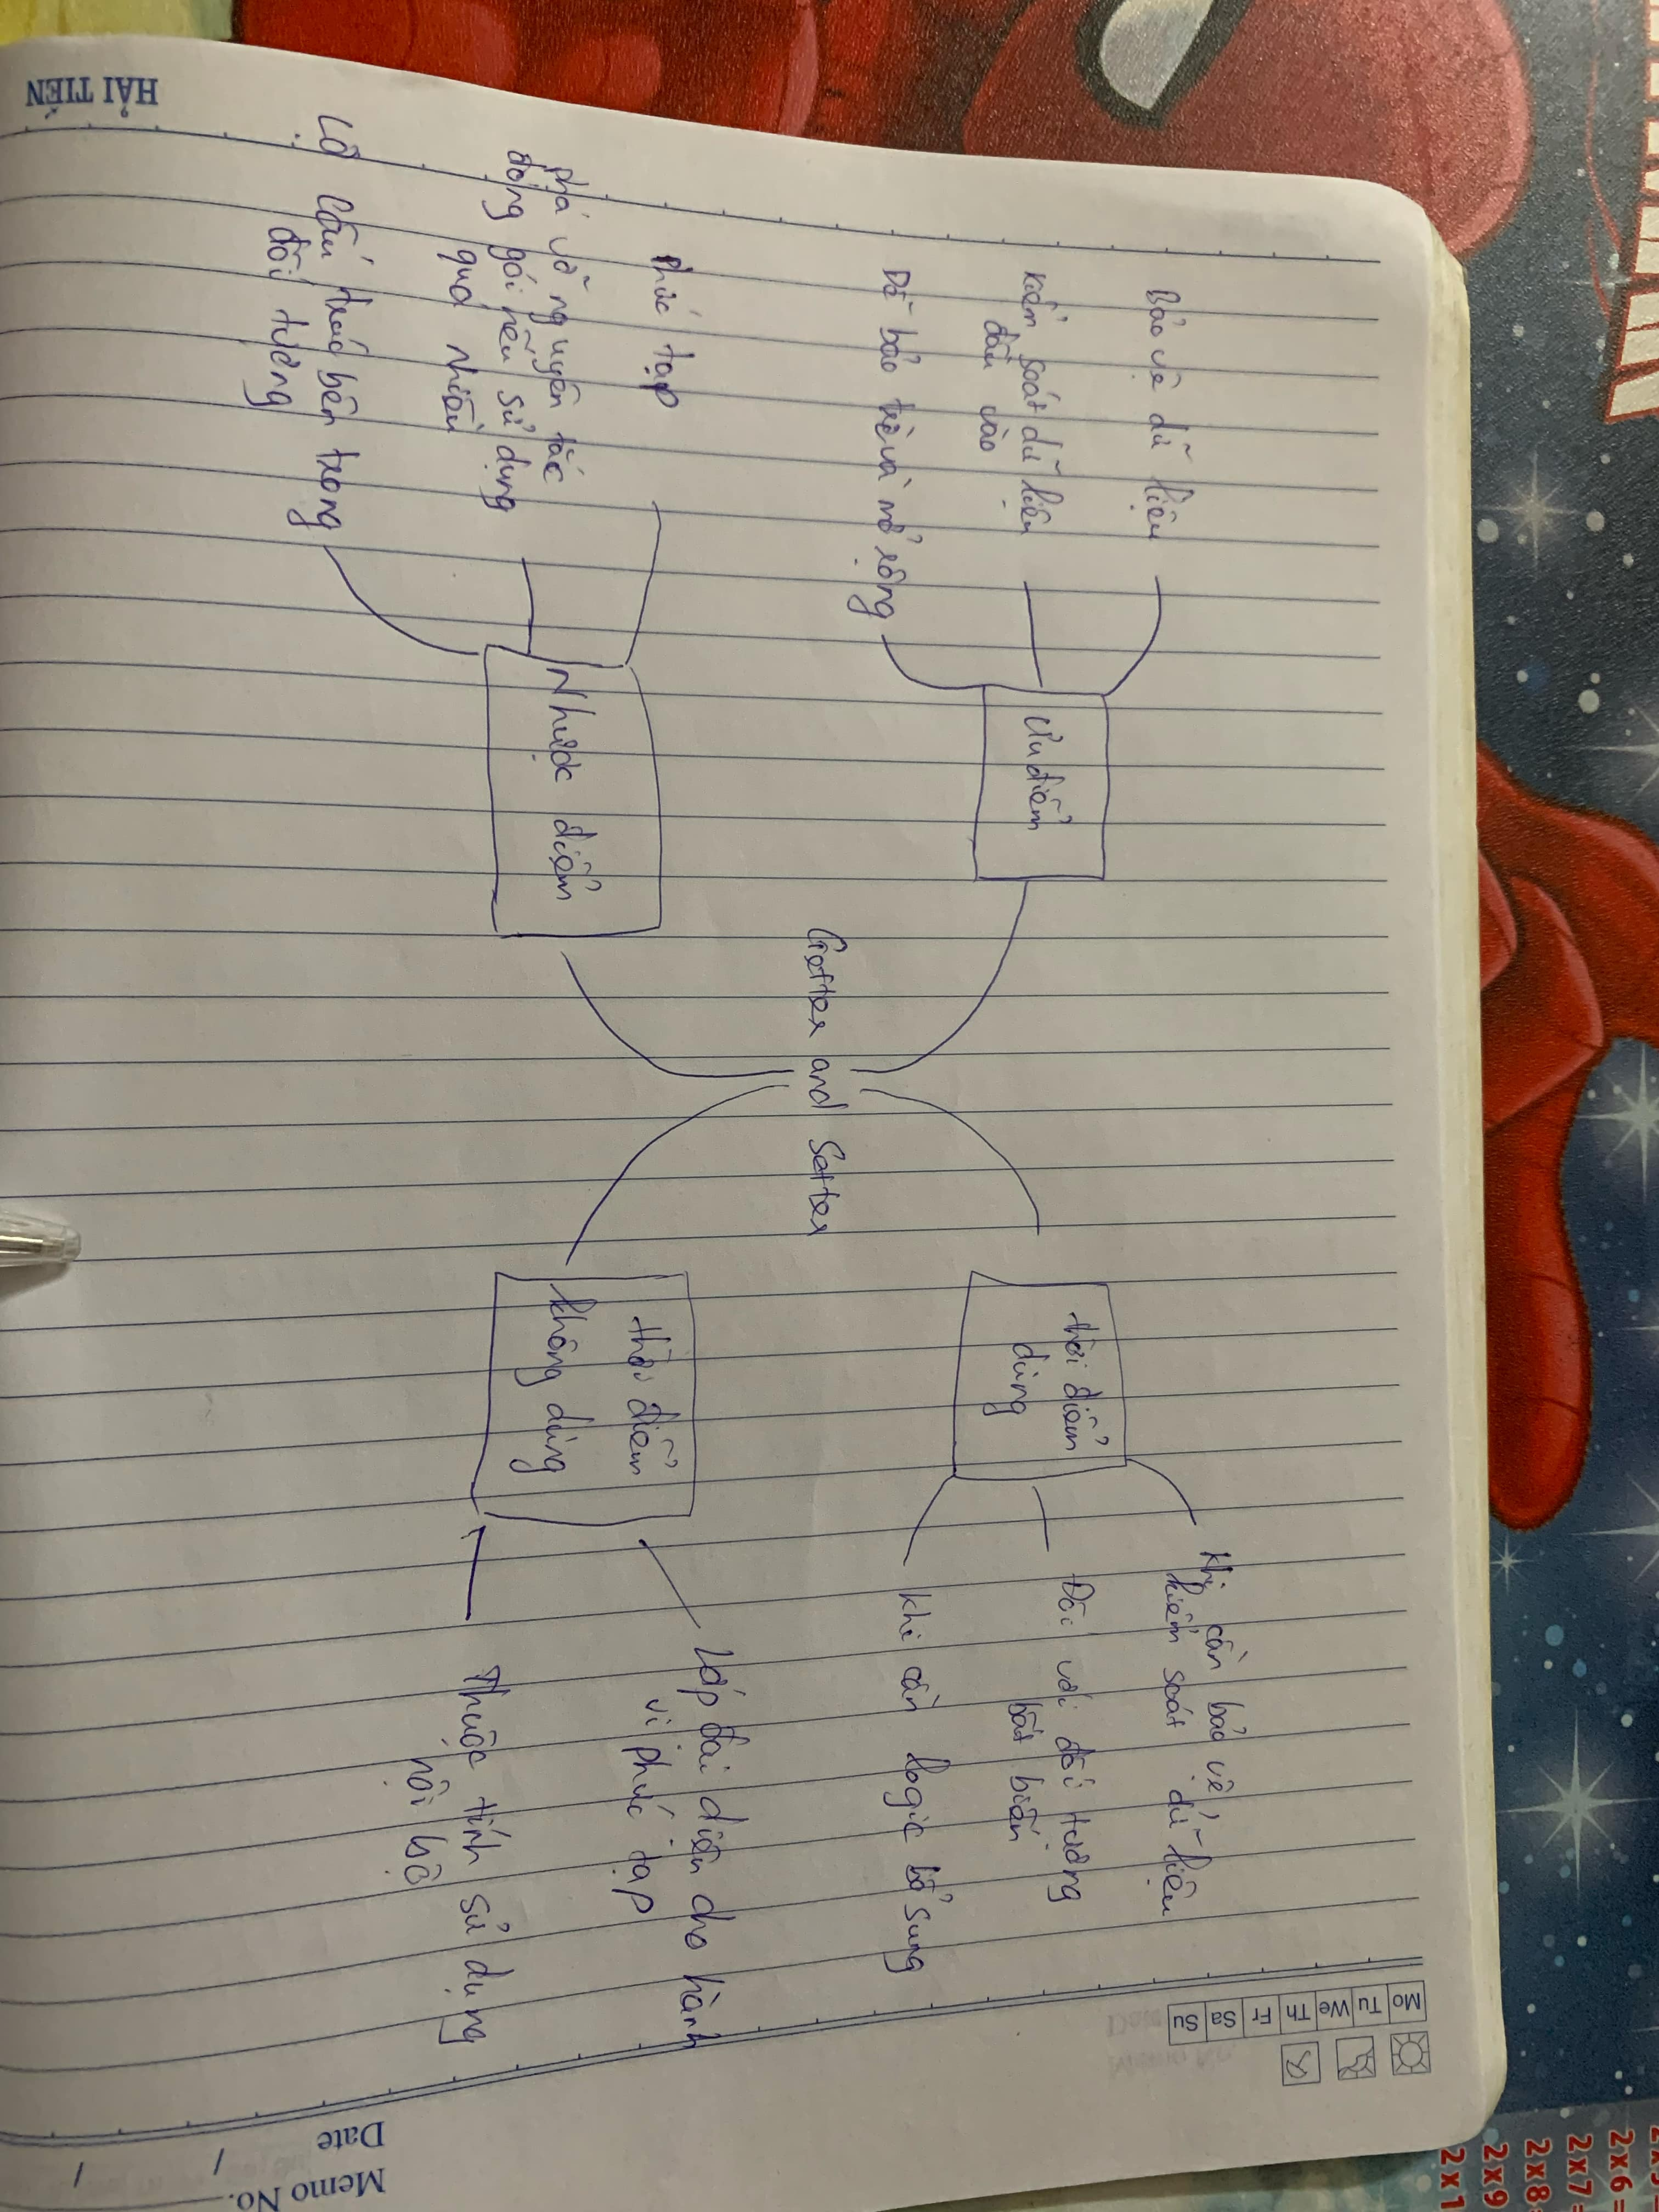 Getter and Setter
Ưu điểm
Bảo vệ dữ liệu
Kiểm soát dữ liệu
đầu vào
Dễ bảo trì và mở rộng
Nhược điểm
Phức tạp
phá vỡ nguyên tắc
đóng gói nếu sử dụng
quá nhiều
Lộ cấu trúc bên trong
đối tượng
thời điểm
dùng
Khi cần bảo vệ
kiểm soát dữ liệu
Đối với đối tượng
bất biến
Khi cần logic bổ sung
thời điểm
không dùng
lớp đại diện cho hành
vi phức tạp
Thuộc tính sử dụng
nội bộ
HẢI TIẾN
Memo No.
Date / /
Mo Tu We Th Fr Sa Su
2x6=
2x7=
2x8=
2x9
2x1